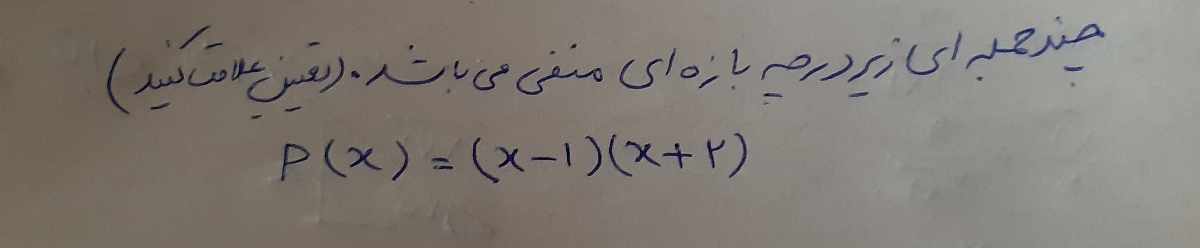 چندجمله ای زیر درچه بازه ای منفی می باشد. (تعیین علامت کنید)
P(x) = (x-1)(x+۲)